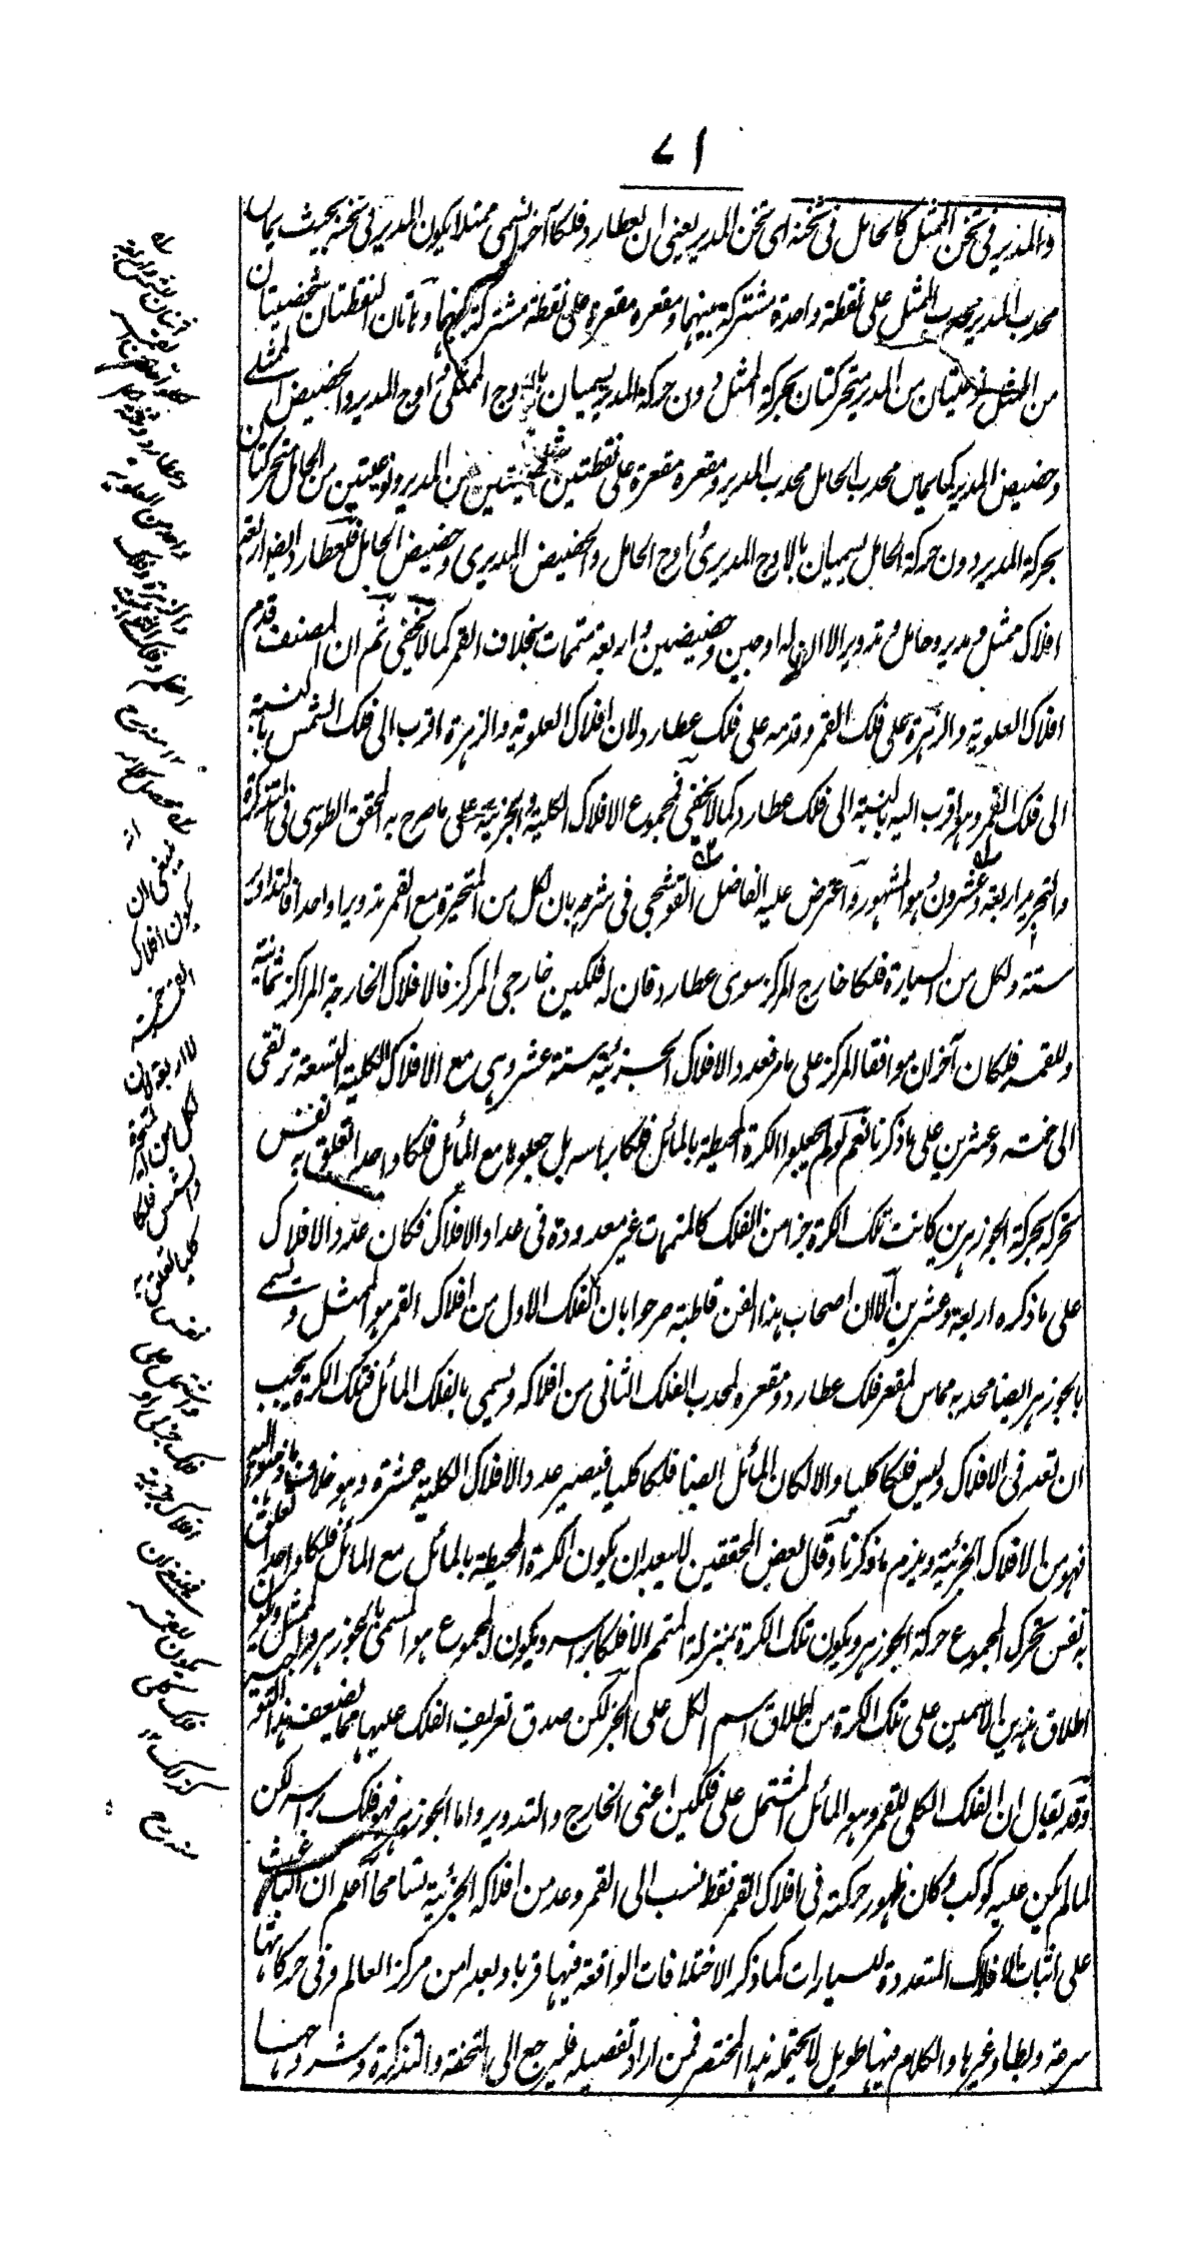 ٧١
والمدير في ثخن الممثل كالحامل في ثخنه اى ثخن المدير يعنى ان لعطارد فلكا آخر يسمى ممثلا يكون المدير فى ثخنه بحيث يماس
محدب المدير محدب الممثل على نقطة واحدة مشتركة بينهما ومقعره مقعره على نقطة مشتركة بينهما وهاتان النقطتان شخصيتان
من الممثل نوعيتان من المدير متحركتان بحركة الممثل دون حركة المدير يسميان بالاوج الممثلى واوج المدير والحضيض الممثلى
وحضيض المدير كما يماس محدب الحامل محدب المدير ومقعره مقعره على نقطتين شخصيتين من المدير ونوعيتين من الحامل متحركتان
بحركة المدير دون حركة الحامل يسميان بالاوج المديرى واوج الحامل والحضيض المديرى وحضيض الحامل فلعطارد ايضا اربعة
افلاك ممثل ومدير وحامل وتدوير الا ان له اوجين وحضيضين واربعة متممات بخلاف القمر كما لا يخفى ثم ان المصنف قدم
افلاك العلوية والزهرة على فلك القمر وقدمه على فلك عطارد لان افلاك العلوية والزهرة اقرب الى فلك الشمس بالنسبة
الى فلك القمر وهو اقرب اليه بالنسبة الى فلك عطارد كما لا يخفى فمجموع الافلاك الكلية والجزئية على ما صرح به المحقق الطوسى فى التذكرة
والتحرير اربعة وعشرون هو المشهور واعترض عليه الفاضل القوشجى فى شرحه بان لكل من المتحيرة مع القمر تدويرا واحدا فالتداوير
ستة ولكل من السيارة فلكا خارج المركز سوى عطارد فان له فلكين خارجى المركز فالافلاك الخارجة المراكز ثمانية
وللقمر فلكان آخران موافقا المركز على ما مر فعدد الافلاك الجزئية ستة عشر وهى مع الافلاك الكلية التسعة ترتقى
الى خمسة وعشرين على ما ذكرنا نعم لو لم يجعلوا الكرة المحيطة بالمائل فلكا براسه بل جعلوها مع المائل فلكا واحدا تعلق به نفس
تحركه بحركة الجوزهرين كانت تلك الكرة جزءا من الفلك كالمتممات غير معدودة فى عداد الافلاك فكان عدد الافلاك
على ما ذكره اربعة وعشرين الا ان اصحاب هذا الفن قاطبة صرحوا بان الفلك الاول من افلاك القمر هو الممثل ويسمى
بالجوزهر ايضا محدبه مماس لمقعر فلك عطارد ومقعره لمحدب الفلك الثانى من افلاكه ويسمى بالفلك المائل فتلك الكرة يجب
ان تعد فى الافلاك وليس فلكا كليا والا لكان المائل ايضا فلكا كليا فيصير عدد الافلاك الكلية عشرة وهو خلاف ما ذهبوا اليه
فهو من الافلاك الجزئية ويلزم ما ذكرنا وقال بعض المحققين لا يبعد ان يكون الكرة المحيطة بالمائل مع المائل فلكا واحدا تعلق
به نفس تحرك المجموع حركة الجوزهر ويكون تلك الكرة بمنزلة المتمم لا فلكا براسه ويكون المجموع هو المسمى بالجوزهر والممثل
اطلاق هذين الاسمين على تلك الكرة من اطلاق اسم الكل على الجزء لكن صدق تعريف الفلك عليها مما يضعف هذا
وقد يقال ان الفلك الكلى للقمر وهو المائل المشتمل على فلكين اعنى الخارج والتدوير واما الجوزهر فهو فلك براسه لكن
لما لم يكن عليه كوكب وكان ظهور حركته فى افلاك القمر فقط نسب الى القمر وعد من افلاكه الجزئية تسامحا اعلم ان الباعث
على اثبات الافلاك المتعددة للسيارات كما ذكر الاختلافات الواقعة فيها قربا وبعدا من مركز العالم وفى حركاتها
سرعة وبطا وغيرها والكلام فيها طويل لا يحتمله هذا المختصر فمن اراد تفصيله فليرجع الى التحفة والتذكرة وشروحها
ينبغى ان
يكون افلاك
القمر خمسة
لا اربعة لان
لكل من المتحيرة
والشمس فلكا
كليا تعلق به
نفس
واشتمل على
فلك جزئى او
افلاك جزئية
فينبغى ان
يكون للقمر
فلك كلى
كذلك
منه رح